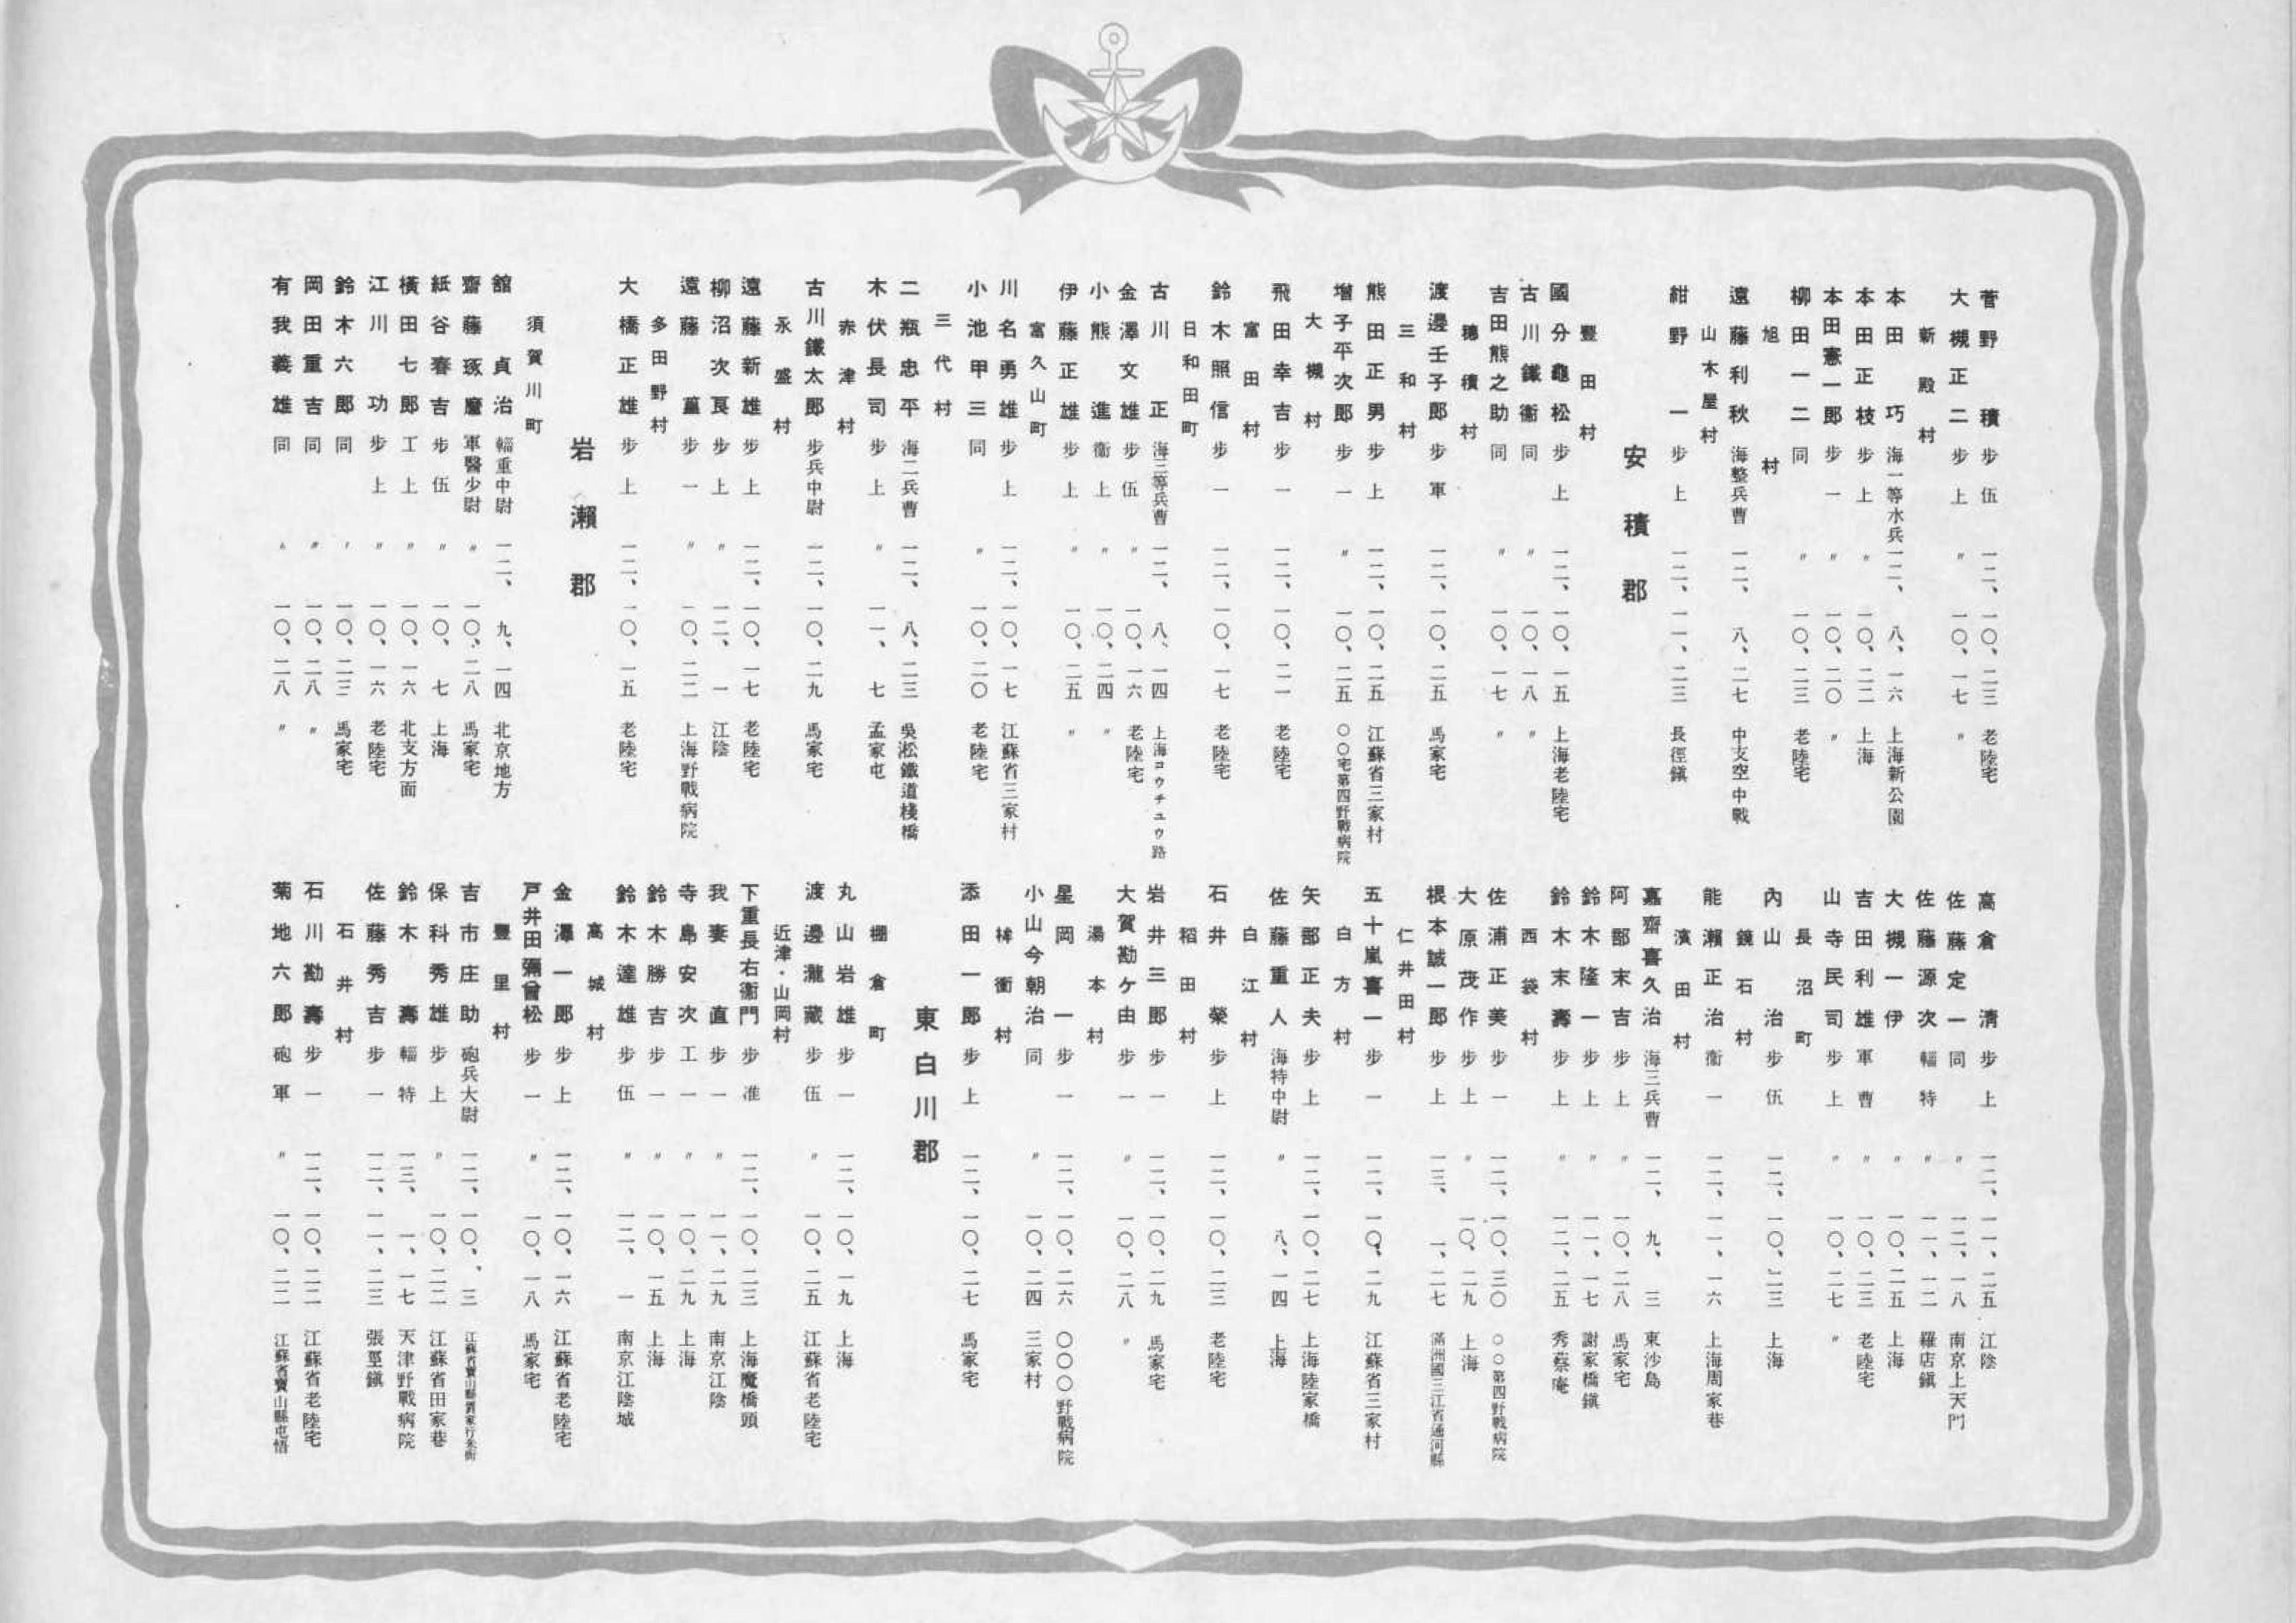 菅野積 步伍 一二、一〇、二三 老陸宅
大槻正二 步上 〃 一〇、一七 〃
新殿村
本田巧 海一等水兵 一二、八、一六 上海新公園
本田正枝 步上 〃 一〇、二二 上海
本田憲一郎 步一 〃 一〇、二〇 〃
柳田一二 同 〃 一〇、二三 老陸宅
旭村
遠藤利秋 海整兵曹 一二、八、二七 中支空中戰
山木屋村
紺野一 步上 一二、一一、二三 長徑鎭
安積郡
豐田村
國分龜松 步上 一二、一〇、一五 上海老陸宅
古川鐵衞 同 〃 一〇、一八 〃
吉田熊之助 同 〃 一〇、一七 〃
穗積村
渡邊壬子郎 步軍 一二、一〇、二五 馬家宅
三和村
熊田正男 步上 一二、一〇、二五 江蘇省三家村
增子平次郎 步一 〃 一〇、二五 〇〇宅第四野戰病院
大槻村
飛田幸吉 步一 一二、一〇、二一 老陸宅
富田村
鈴木照信 步一 一二、一〇、一七 老陸宅
日和田町
古川正 海三等兵曹 一二、八、一四 上海コウチユウ路
金澤文雄 步伍 〃 一〇、一六 老陸宅
小熊進 衞上 〃 一〇、二四 〃
伊藤正雄 步上 〃 一〇、二五 〃
富久山町
川名勇雄 步上 一二、一〇、一七 江蘇省三家村
小池甲三 同 〃 一〇、二〇 老陸宅
三代村
二瓶忠平 海二兵曹 一二、八、二三 吳淞鐵道棧橋
木伏長司 步上 〃 一一、七 孟家屯
赤津村
古川鐵太郎 步兵中尉 一二、一〇、二九 馬家宅
永盛村
遠藤新雄 步上 一二、一〇、一七 老陸宅
柳沼次良 步上 〃 一二、一 江陰
遠藤菫 步一 〃 一〇、二二 上海野戰病院
多田野村
大橋正雄 步上 一二、一〇、一五 老陸宅
岩瀨郡
須賀川町
舘貞治 輜重中尉 一二、九、一四 北京地方
齋藤琢磨 軍醫少尉 〃 一〇、二八 馬家宅
紙谷春吉 步伍 〃 一〇、七 上海
橫田七郎 工上 〃 一〇、一六 北支方面
江川功 步上 〃 一〇、一六 老陸宅
鈴木六郎 同 〃 一〇、二三 馬家宅
岡田重吉 同 〃 一〇、二八 〃
有我義雄 同 〃 一〇、二八 〃
高倉淸 步上 一二、一一、二五 江陰
佐藤定一 同 〃 一二、一八 南京上天門
佐藤源次 輜特 〃 一一、一二 羅店鎭
大槻一伊 〃 一〇、二五 上海
吉田利雄 軍曹 〃 一〇、二三 老陸宅
山寺民司 步上 〃 一〇、二七 〃
長沼町
內山治 步伍 一二、一〇、二三 上海
鏡石村
能瀨正治 衞一 一二、一一、一六 上海周家巷
濱田村
嘉齋喜久治 海三兵曹 一二、九、三 東沙島
阿部末吉 步上 〃 一〇、二八 馬家宅
鈴木隆一 步上 〃 一一、一七 謝家橋鎭
鈴木末壽 步上 〃 一二、二五 秀蔡庵
西袋村
佐浦正美 步一 一二、一〇、三〇 〇〇第四野戰病院
大原茂作 步上 〃 一〇、二九 上海
根本誠一郎 步上 一三、一、二七 滿洲國三江省通河縣
仁井田村
五十嵐喜一 步一 一二、一〇、二九 江蘇省三家村
白方村
矢部正夫 步上 一二、一〇、二七 上海陸家橋
佐藤重人 海特中尉 〃 八、一四 上海
白江村
石井榮 步上 一二、一〇、二三 老陸宅
稻田村
岩井三郎 步一 一二、一〇、二九 馬家宅
大賀勘ケ由 步一 〃 一〇、二八 〃
湯本村
星岡一 步一 一二、一〇、二六 〇〇〇野戰病院
小山今朝治 同 〃 一〇、二四 三家村
桙衝村
添田一郎 步上 一二、一〇、二七 馬家宅
東白川郡
棚倉町
丸山岩雄 步一 一二、一〇、一九 上海
渡邊瀧藏 步伍 〃 一〇、二五 江蘇省老陸宅
近津・山岡村
下重長右衞門 步准 一二、一〇、二三 上海魔橋頭
我妻直 步一 〃 一一、二九 南京江陰
寺島安次 工一 〃 一〇、二九 上海
鈴木勝吉 步一 〃 一〇、一五 上海
鈴木達雄 步伍 〃 一二、一 南京江陰城
高城村
金澤一郎 步上 一二、一〇、一六 江蘇省老陸宅
戶井田彌曾松 步一 〃 一〇、一八 馬家宅
豐里村
吉市庄助 砲兵大尉 一二、一〇、三
保科秀雄 步上 〃 一〇、二二 江蘇省田家巷
鈴木壽 輜特 一三、一、一七 天津野戰病院
佐藤秀吉 步一 一二、一一、二三 張堊鎭
石井村
石川勘壽 步一 一二、一〇、二二 江蘇省老陸宅
菊地六郎 砲軍 〃 一〇、二二 江蘇省寶山縣屯悟